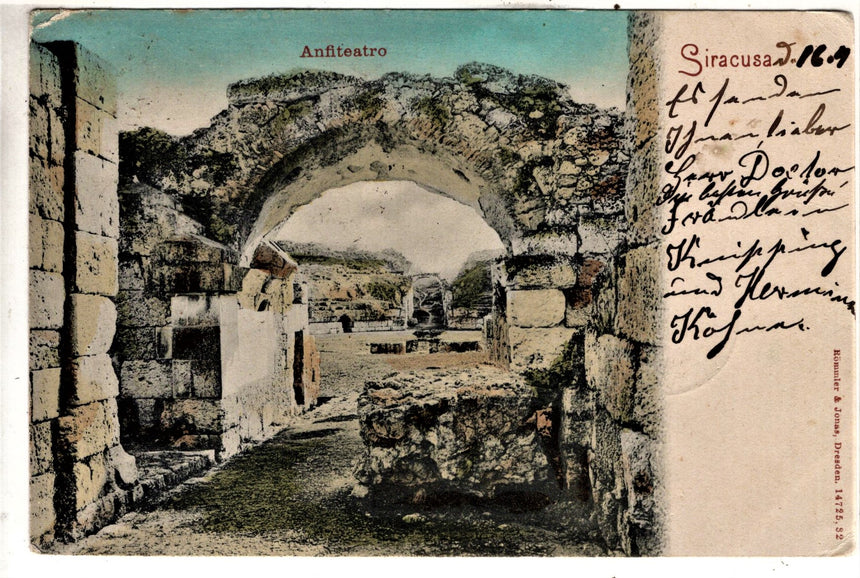 Anfiteatro
Siracusa d. 16.4
Es senden
Ihnen lieber
Herr Doctor
die besten Grüße
Fräulein
Knipping
und Hermine
Römmler & Jonas, Dresden. 14725, 32